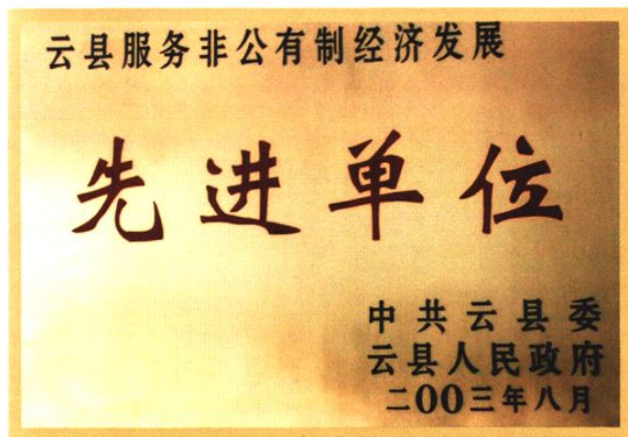 云县服务非公有制经济发展
先进单位
中共云县委
云县人民政府
二00三年八月